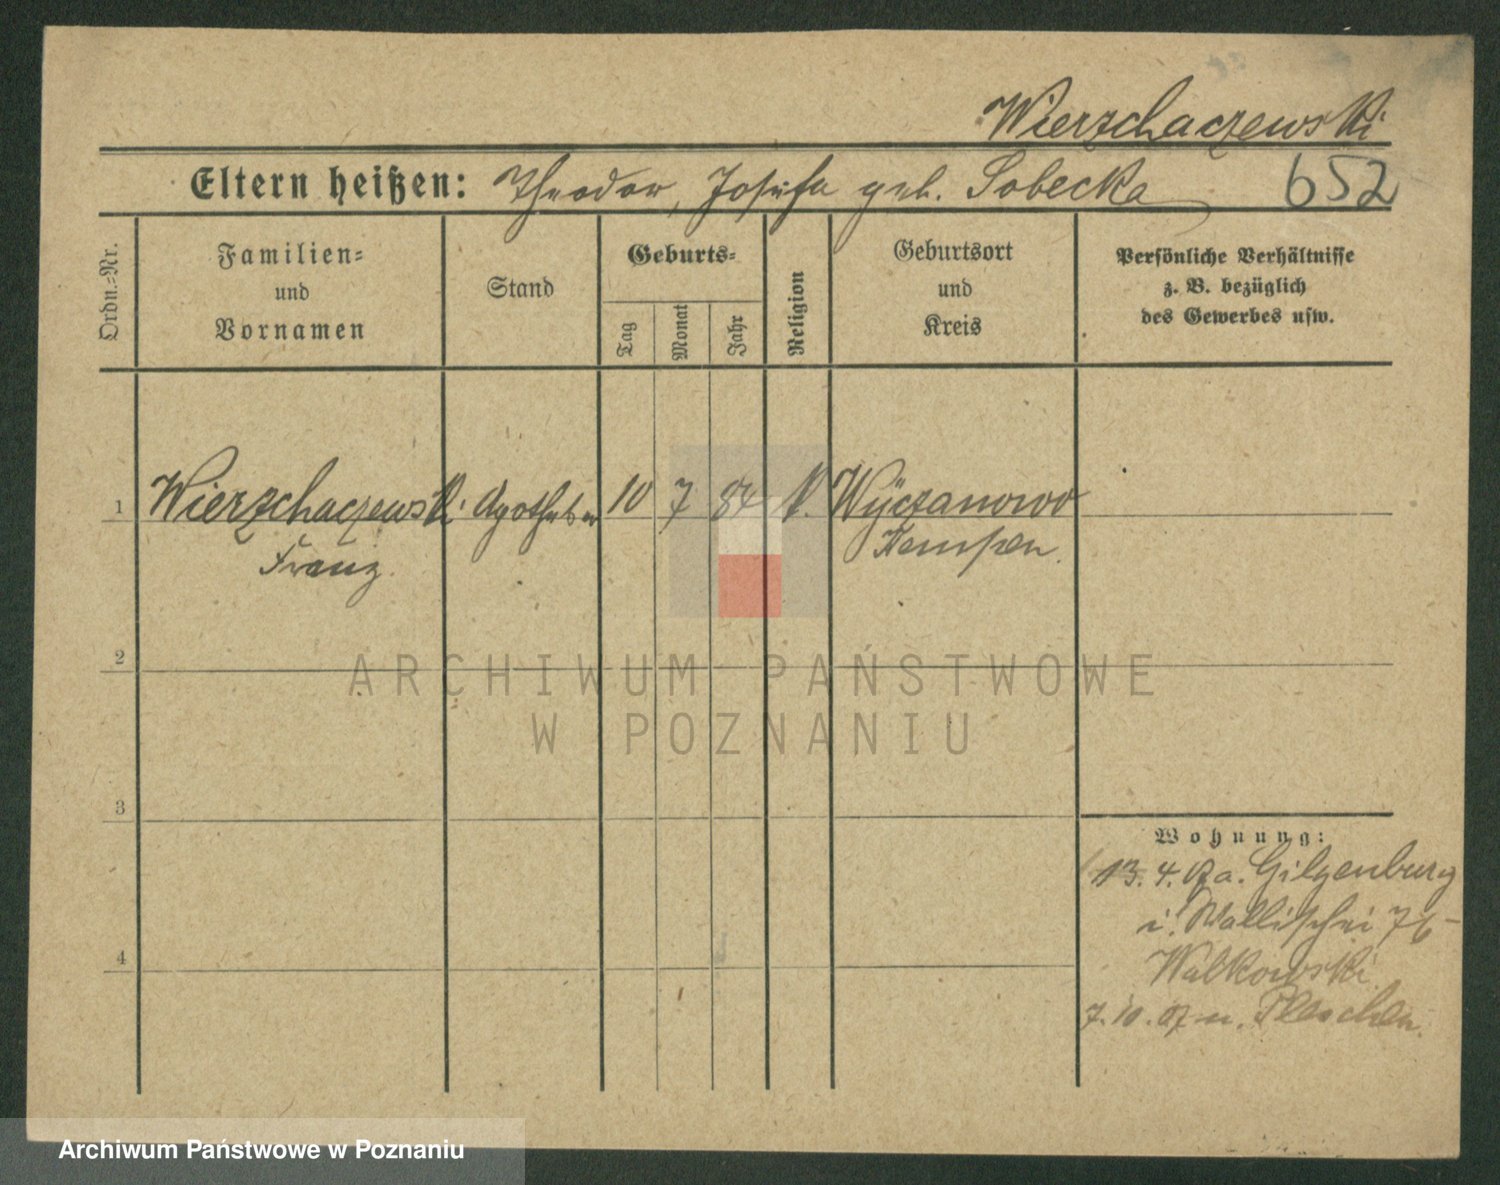 Wierzchaczewski
Eltern heißen: Theodor, Josefa geb. Sobecka 652
Ordn.-Nr.
Familien-
und
Vornamen
Stand
Geburts-
Tag
Monat
Jahr
Religion
Geburtsort
und
Kreis
Persönliche Verhältnisse
z. B. bezüglich
des Gewerbes usw.
1 Wierzchaczewski Apotheker 10 7 84 k. Wyczanowo
Franz Kempen
2
ARCHIWUM PAŃSTWOWE
W POZNANIU
3
Wohnung:
13. 4. 07 a. Gilgenburg
i. Wallischei 76
Walkowski
4
7. 10. 07 n. Pleschen.
Archiwum Państwowe w Poznaniu